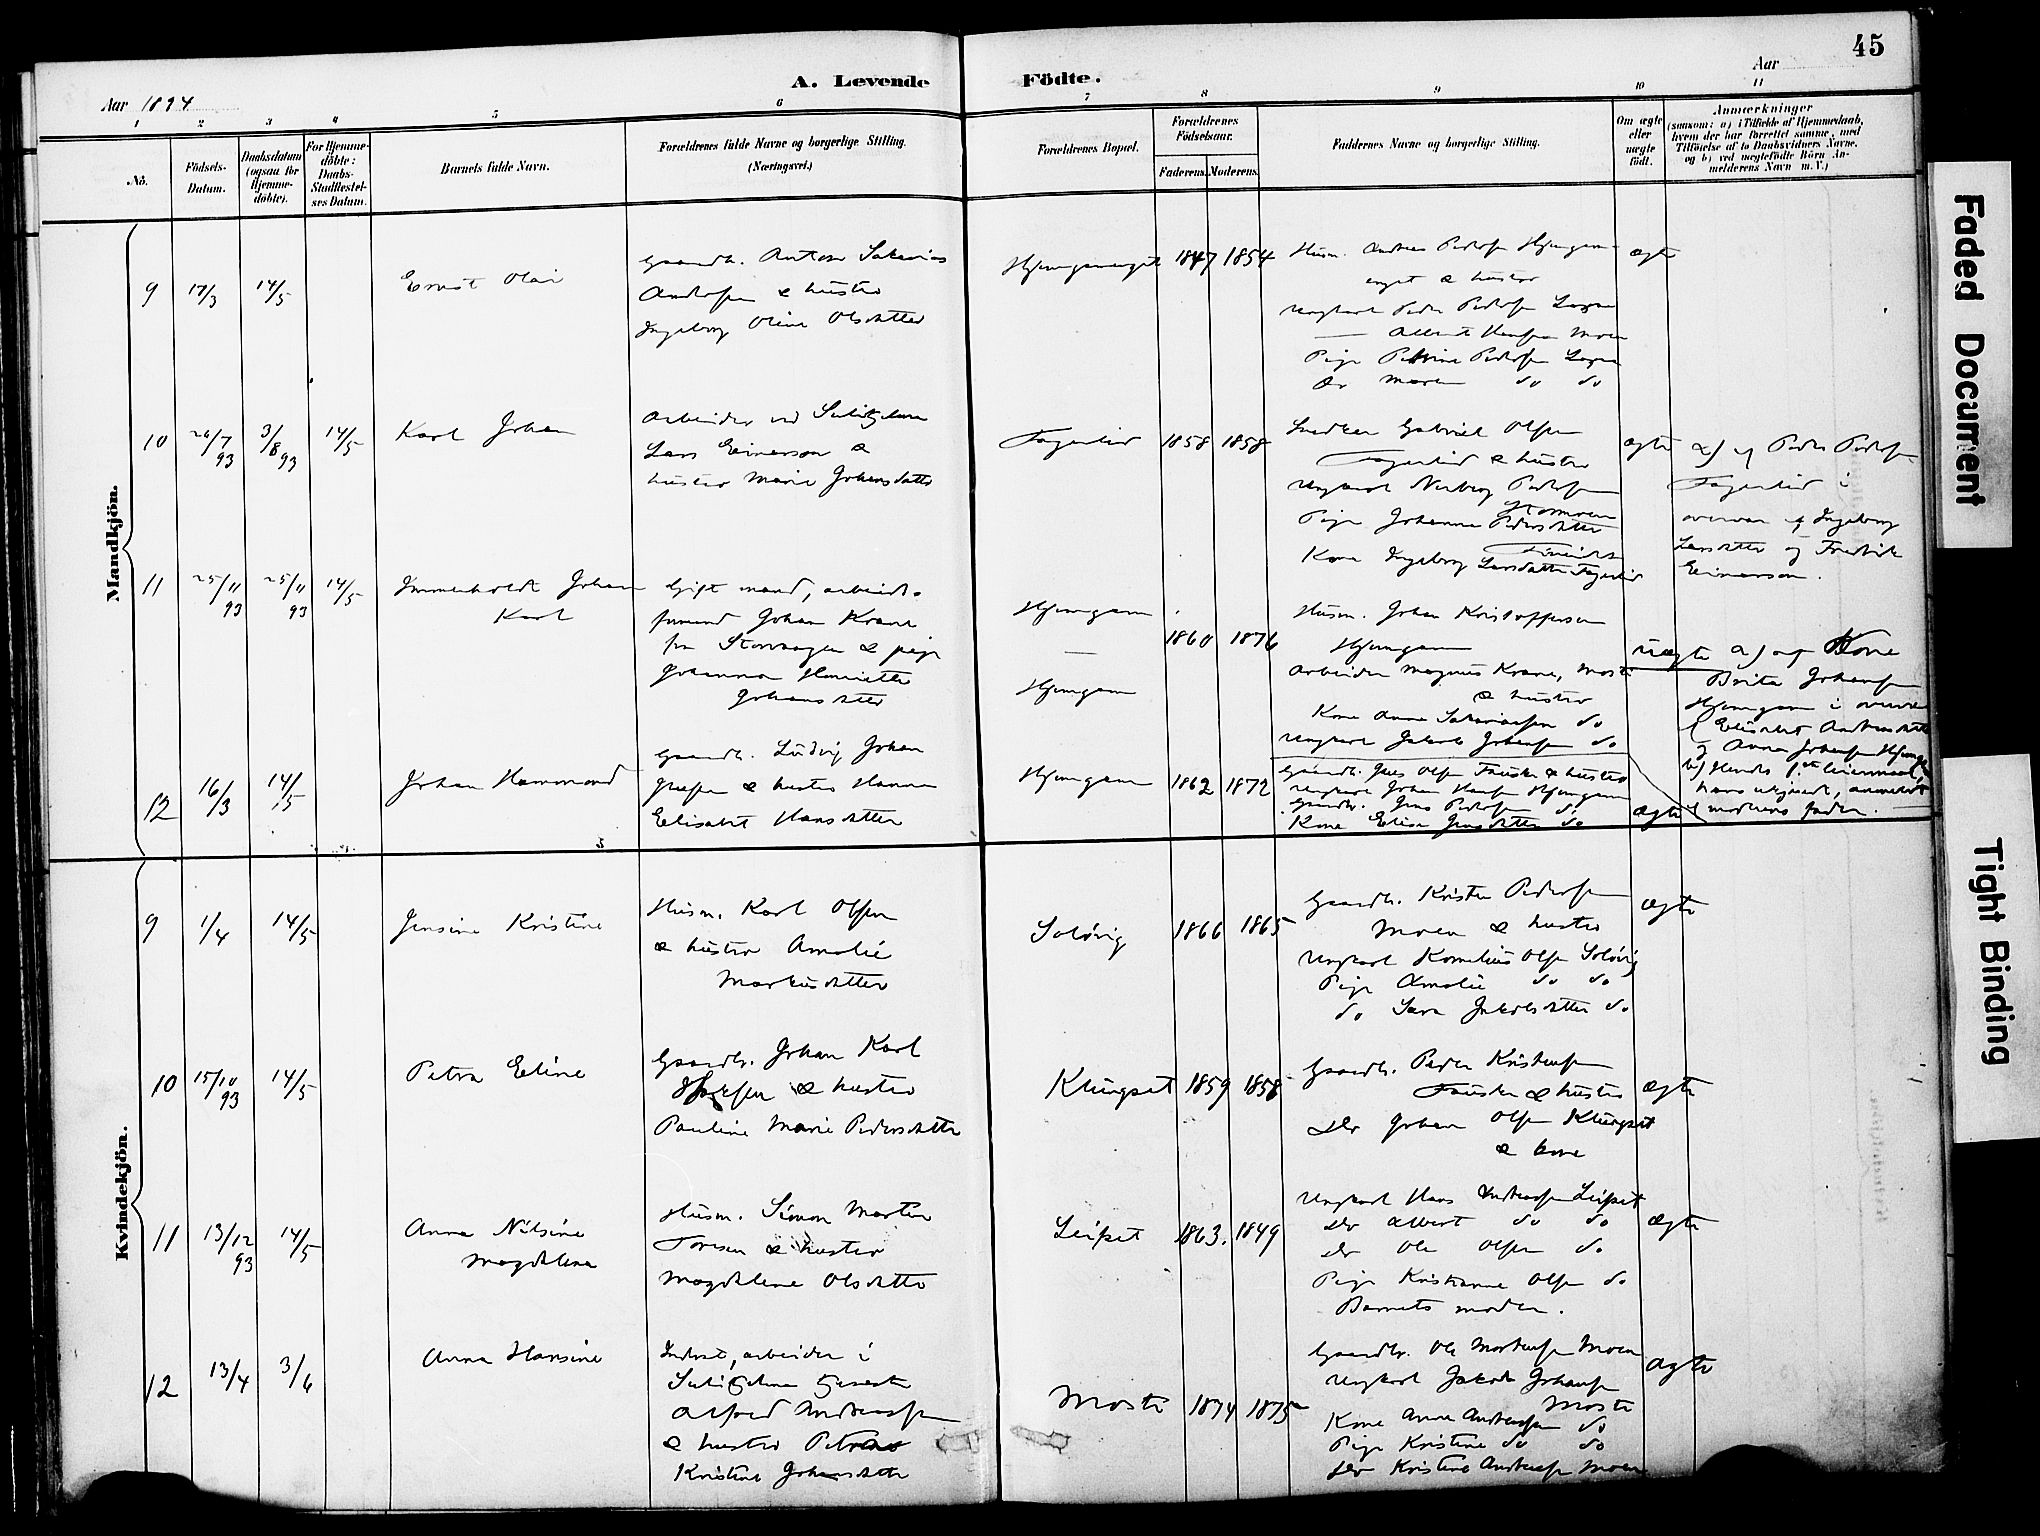 45
A. Levende Födte.
Aar 1894
Aar
1 2 3 4 5 6 7 8 9 10 11
No.
Födsels-Datum.
Daabsdatum (ogsaa for Hjemme-döbte).
For Hjemme-döbte: Daabs-Stadfæstel-ses Datum.
Barnets fulde Navn.
Forældrenes fulde Navne og borgerlige Stilling. (Næringsvei.)
Forældrenes Bopæl.
Forældrenes Födselsaar.
Faderens. Moderens.
Faddernes Navne og borgerlige Stilling.
Om ægte eller uægte födt.
Anmærkninger
(saasom: a) i Tilfælde af Hjemmedaab,
hvem der har forrettet samme, med
Tilföielse af to Daabsvidners Navne,
og b) ved uægtefödte Börn An-
melderens Navn m. V.)
Mandkjön.
9 17/3 14/5
Ernst Olai
Gaardb. Anton Sakarias
Andersen & hustro
Ingeborg Oline Olsdatter
1847 1854
Husm. Andreas Pedersen
enget & hustro
Ungkarl Peder Pedersen
Albert Hansen Moen
Pige Petrine Pedersen
do Maren do do
ægte
10 26/7 93 3/8 93 14/5
Karl Johan
Arbeider ved Sulitjelma
Lars Einarson &
hustro Marie Johansdatter
Fagerlid 1858 1858
Snedker Gabriel Olsen
Fagerlid & hustro
Ungkarl Pedersen
Pige Johanna Pedersdatter
Kone Ingeborg Larsdatter Fagerlid
ægte
a) af Peder Pedersen
Fagerlid i
overvær af Ingeborg
Larsdatter og Fredrik
Einarson.
11 25/11 93 25/11 93 14/5
Immenholdt Johan
Karl
Gift mand, arbeids-
formand Johan Krane
fra & pige
Johanna Henriette
Johansdatter
Hjemgam
1860 1876
Hjemgam
Husm. Johan Kristoffersen
Hjemgam
Arbeider Magnus Krane, Mosti
& hustro
Kone Anna Sakariassen do
Ungkarl Jakob Johansen do
uægte
a) af Kone
Brita Johansen
Hjemgam i overvær
af Elisabet Andreasdatter
og Anna Johansen Hjemgam
b) Hendes 1ste leiermaal,
hans ubekjendt, anmeldt
af moderens fader.
12 16/3 14/5
Johan Hammond
Gaardb. Ludvig Johan
Jensen & hustro Hanna
Elisabet Hansdatter
Hjemgam 1862 1872
Gaardb. Jens Olsen Fauske & hustro
Ungkarl Johan Hansen Hjemgam
Gaardbr. Jens Pedersen do
Kone Elisa Jensdatter do
ægte
Kvindekjön.
9 1/4 14/5
Jensine Kristine
Husm. Karl Olsen
& hustro Amalie
Markusdatter
Solövig 1866 1865
Gaardb. Kristen Pedersen
Moen & hustro
Ungkarl Kornelius Olsen Solövig
Pige Amalie do do
do Sara Jakobsdatter do
ægte
10 15/10 93 14/5
Petra Eline
Gaardbr. Johan Karl
& hustro
Pauline Marie Pedersdatter
Klungset 1859 1858
Gaardb. Peder Kristensen
Fauske & hustro
do Johan Olsen Klungset
& kone
ægte
11 13/12 93 14/5
Anna Nilsine
Magdalena
Husm. Simon Martin
Toresen & hustro
Magdalene Olsdatter
Leifset 1863. 1849
Ungkarl Hans Andreassen Leifset
do Albert do do
do Ole Olsen do
Pige Kristianne Olsen do
Barnets moder.
ægte
12 13/4 3/6
Anna Hansine
Inderst, arbeider i
Sulitjelma
Alfred Andreassen
& hustro
Kristine Johansdatter
Mosti 1874 1875
Gaardbr. Ole Mortensen Moen
Ungkarl Jakob Johansen
Mosti
Kone Anna Andreassen do
Pige Kristine do do
do Kristine Andreassen Moen
ægte
Faded Document
Tight Binding